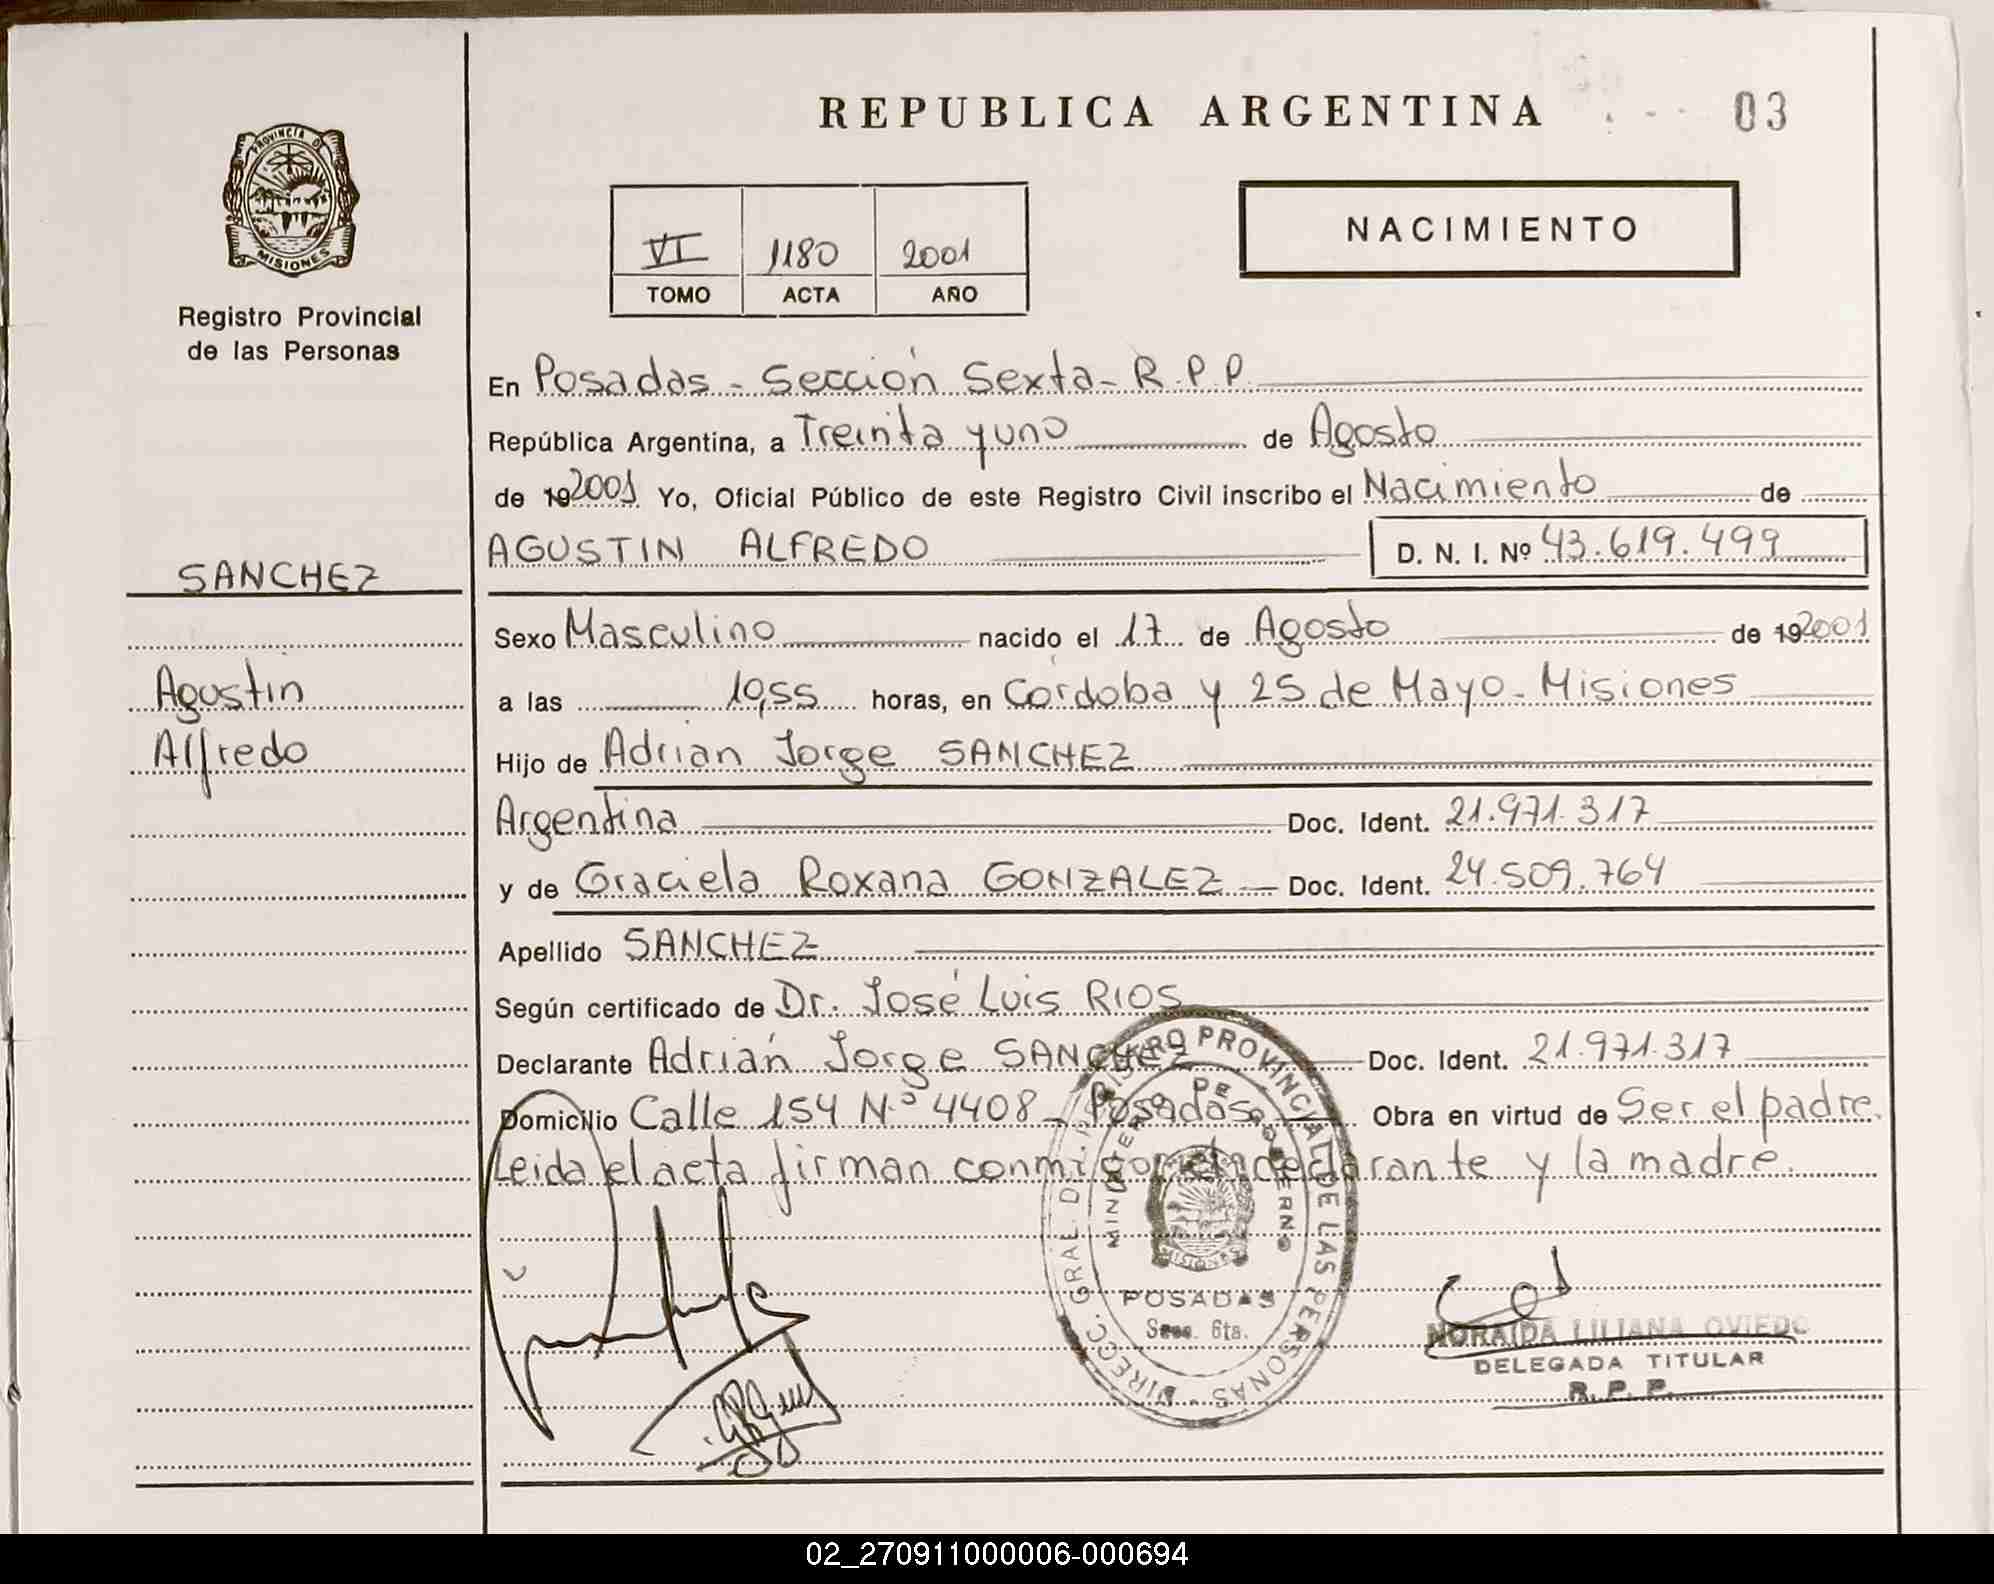 REPUBLICA ARGENTINA
03
PROVINCIA DE
MISIONES
Registro Provincial
de las Personas
VI 1180 2001
TOMO ACTA AÑO
NACIMIENTO
En Posadas - Sección Sexta - R.P.P.
República Argentina, a Treinta y uno de Agosto
de 192001 Yo, Oficial Público de este Registro Civil inscribo el Nacimiento de
AGUSTIN ALFREDO D. N. I. Nº 43.619.499
SANCHEZ
Sexo Masculino nacido el 17 de Agosto de 192001
Agustin
a las 10,55 horas, en Córdoba y 25 de Mayo - Misiones
Alfredo
Hijo de Adrian Jorge SANCHEZ
Argentina Doc. Ident. 21.971.317
y de Graciela Roxana GONZALEZ Doc. Ident. 24.509.764
Apellido SANCHEZ
Según certificado de Dr. José Luis RIOS
Declarante Adrián Jorge SANCHEZ Doc. Ident. 21.971.317
Domicilio Calle 154 N.º 4408 - Posadas Obra en virtud de Ser el padre.
Leida el acta firman conmigo el declarante y la madre.
DIRECC. GRAL. DEL REGISTRO PROVINCIAL DE LAS PERSONAS
MINISTERIO DE GOBIERNO
MISIONES
POSADAS
Secc. 6ta.
NORAIDA LILIANA OVIEDO
DELEGADA TITULAR
R. P. P.
02_270911000006-000694